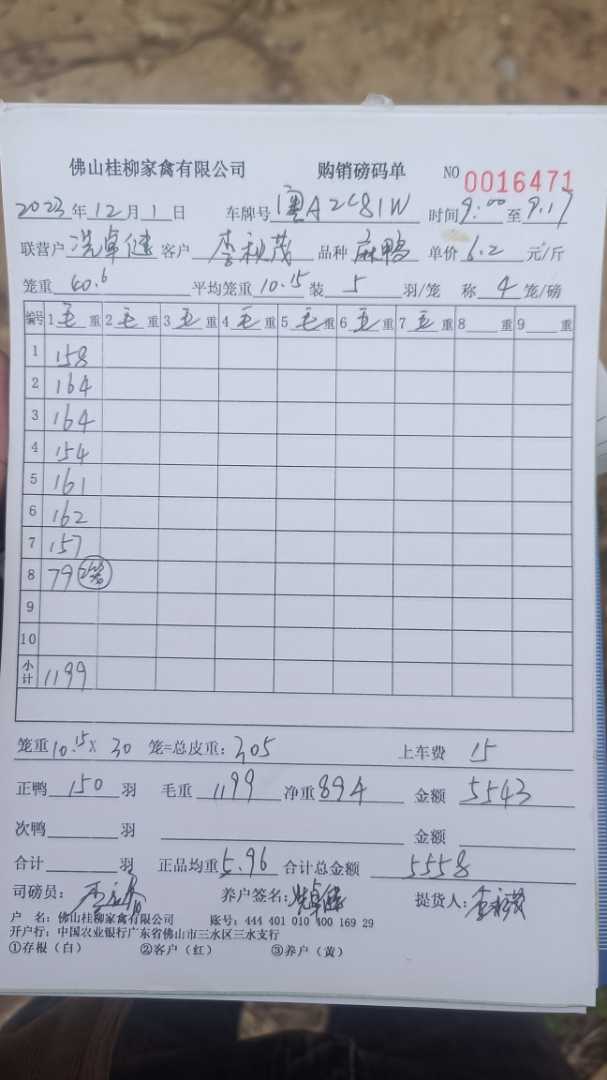 佛山桂柳家禽有限公司 购销磅码单 NO 0016471
2023年12月1日 车牌号 粤A2C81W 时间9:00至9:17
联营户 冼卓健 客户 李秋茂 品种 麻鸭 单价 6.2 元/斤
笼重 40.6 平均笼重 10.15 装 5 羽/笼 称 4 笼/磅
编号 1毛重 2毛重 3毛重 4毛重 5毛重 6毛重 7毛重 8 重 9 重
1 158
2 164
3 164
4 154
5 161
6 162
7 157
8 79 2笼
9
10
小计 1199
笼重10.15X 30 笼=总皮重:305 上车费 15
正鸭 150 羽 毛重 1199 净重894 金额 5543
次鸭 羽 金额
合计 羽 正品均重5.96 合计总金额 5558
司磅员: 养户签名:冼卓健 提货人:李秋茂
户 名:佛山桂柳家禽有限公司 账号:444 401 010 400 169 29
开户行:中国农业银行广东省佛山市三水区三水支行
①存根(白) ②客户(红) ③养户(黄)